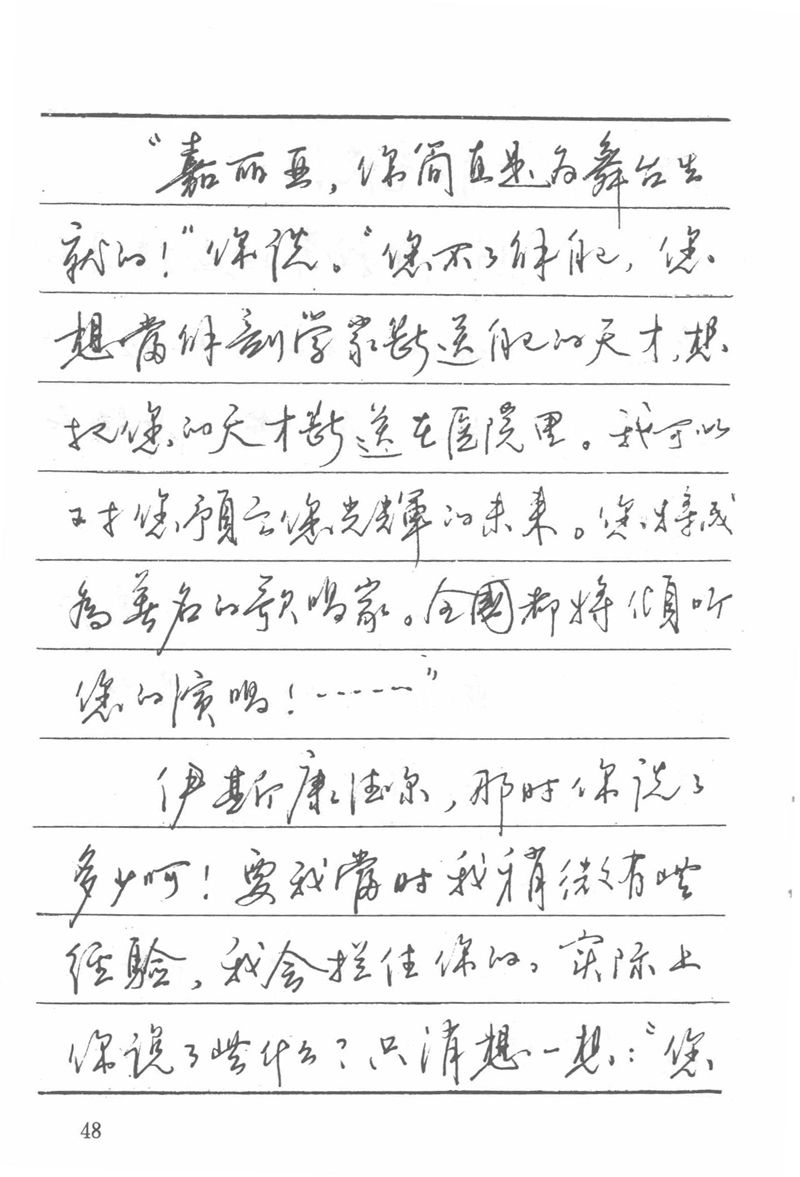 “嘉丽亚，你简直是为舞台生
就的！”你说。“您不了解自己，您
想當解剖学家断送自己的天才，想
把您的天才断送在医院里。我可以
对您預言您光辉的未来。您将成
為著名的歌唱家。全國都将傾听
您的演唱！……”
伊斯康德尔，那时你说了
多少呵！要我當时我稍微有些
经验，我会拦住你的，实际上
你说了些什么？只消想一想：“您
48